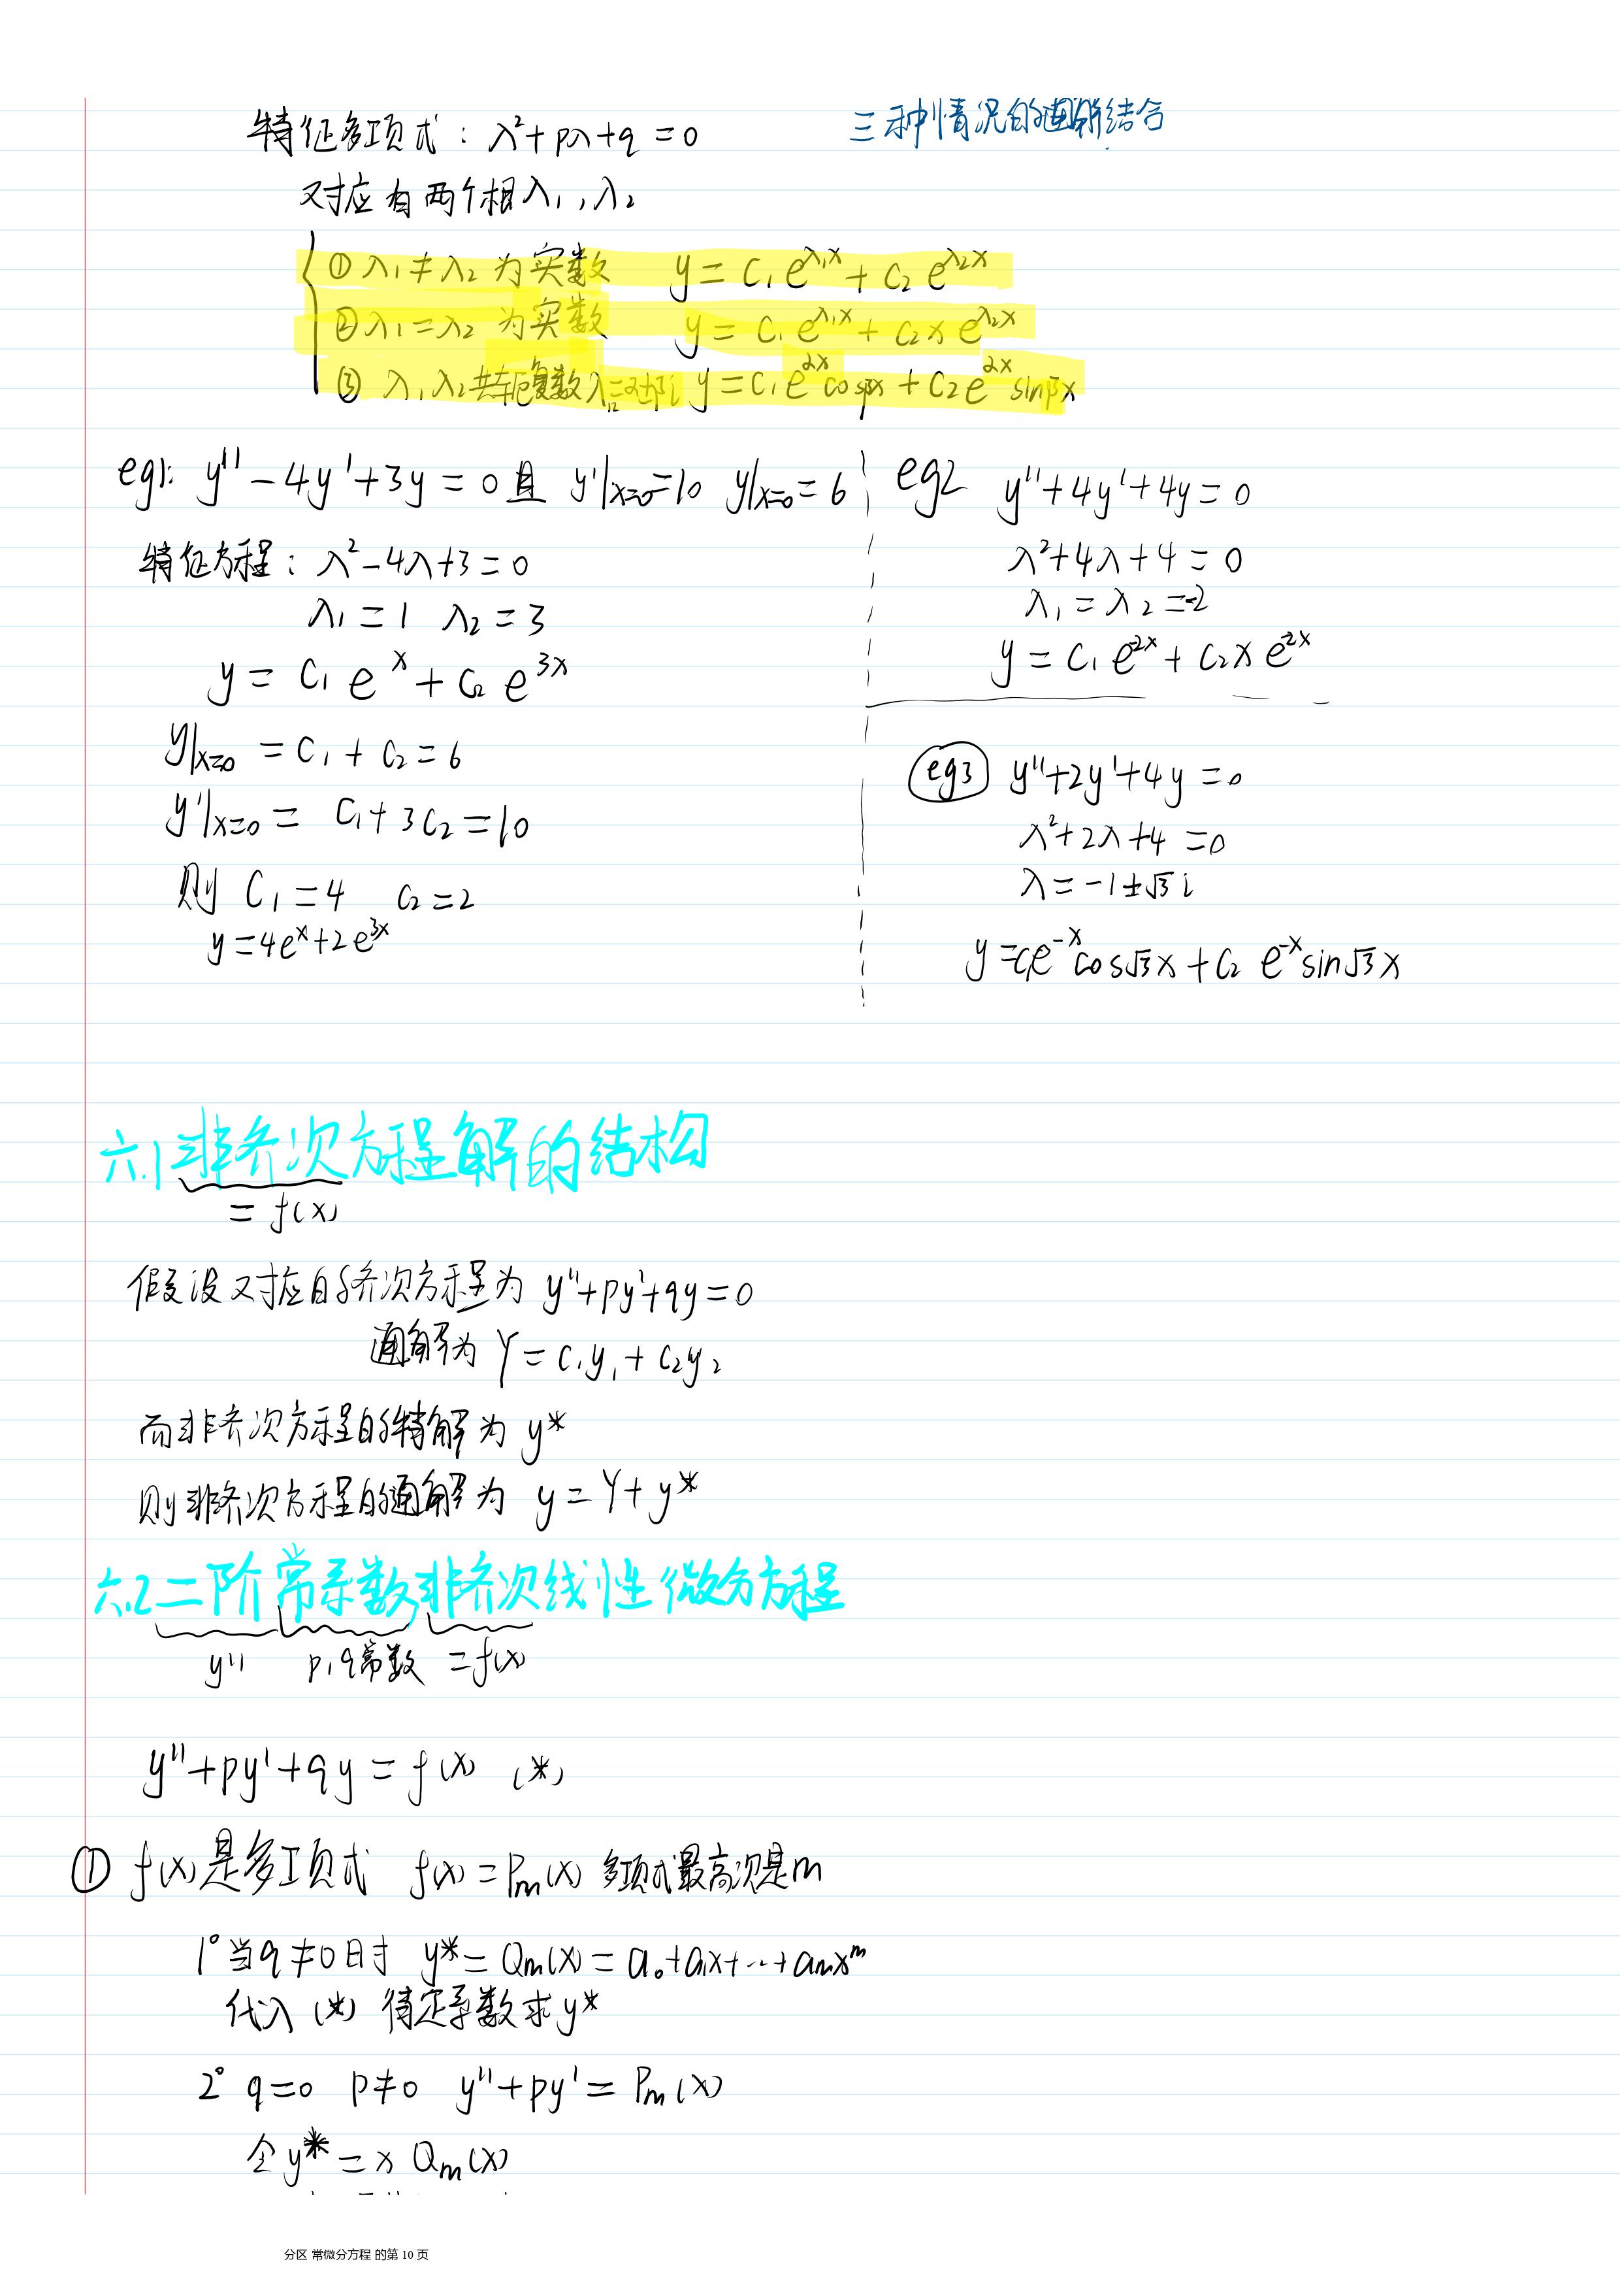 特征多项式：λ²+pλ+q=0
三种情况的通解结合
对应有两个根λ₁,λ₂
①λ₁≠λ₂为实数 y=C₁e^{λ₁x}+C₂e^{λ₂x}
②λ₁=λ₂为实数 y=C₁e^{λ₁x}+C₂xe^{λ₂x}
③λ₁λ₂共轭复数λ₁₂=α±βi y=C₁e^{αx}cosβx+C₂e^{αx}sinβx
eg1: y''-4y'+3y=0且 y'|x=0=10 y|x=0=6
特征方程：λ²-4λ+3=0
λ₁=1 λ₂=3
y=C₁e^x+C₂e^{3x}
y|x=0=C₁+C₂=6
y'|x=0=C₁+3C₂=10
则 C₁=4 C₂=2
y=4e^x+2e^{3x}
eg2 y''+4y'+4y=0
λ²+4λ+4=0
λ₁=λ₂=-2
y=C₁e^{-2x}+C₂xe^{-2x}
eg3 y''+2y'+4y=0
λ²+2λ+4=0
λ=-1±√3i
y=C₁e^{-x}cos√3x+C₂e^{-x}sin√3x
六.1非齐次方程解的结构
=f(x)
假设对应的齐次方程为 y''+py'+qy=0
通解为Y=C₁y₁+C₂y₂
而非齐次方程的特解为 y*
则非齐次方程的通解为 y=Y+y*
六.2二阶常系数非齐次线性微分方程
y'' p,q常数 =f(x)
y''+py'+qy=f(x) (*)
① f(x)是多项式 f(x)=Pm(x) 多项式最高次是m
1°当q≠0时 y*=Qm(x)=a₀+a₁x+…+amx^m
代入(*) 待定系数求y*
2° q=0 p≠0 y''+py'=Pm(x)
令y*=xQm(x)
分区 常微分方程 的第 10 页